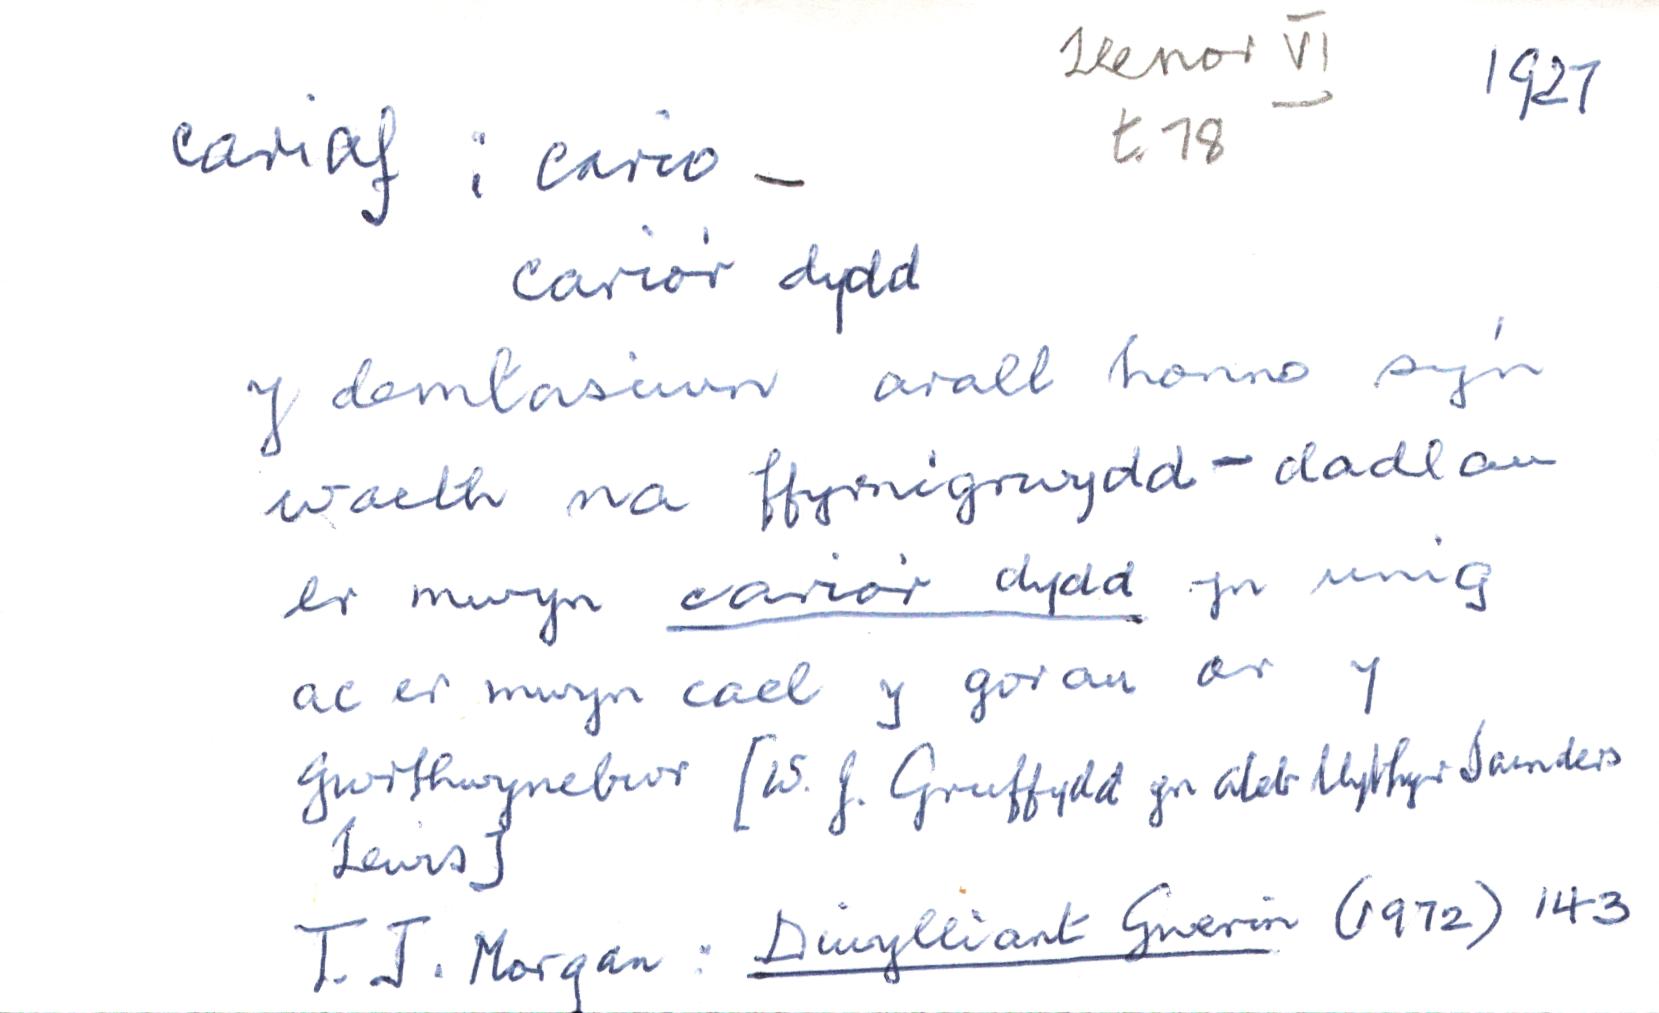 Llenor VI 1927
t. 78
cariaf : cario –
cario'r dydd
y demtasiwn arall honno sy'n
waeth na ffyrnigrwydd – dadlau
er mwyn cario'r dydd yn unig
ac er mwyn cael y gorau ar y
gwrthwynebwr [W. J. Gruffydd yn ateb llythyr Saunders
Lewis]
T. J. Morgan : Diwylliant Gwerin (1972) 143